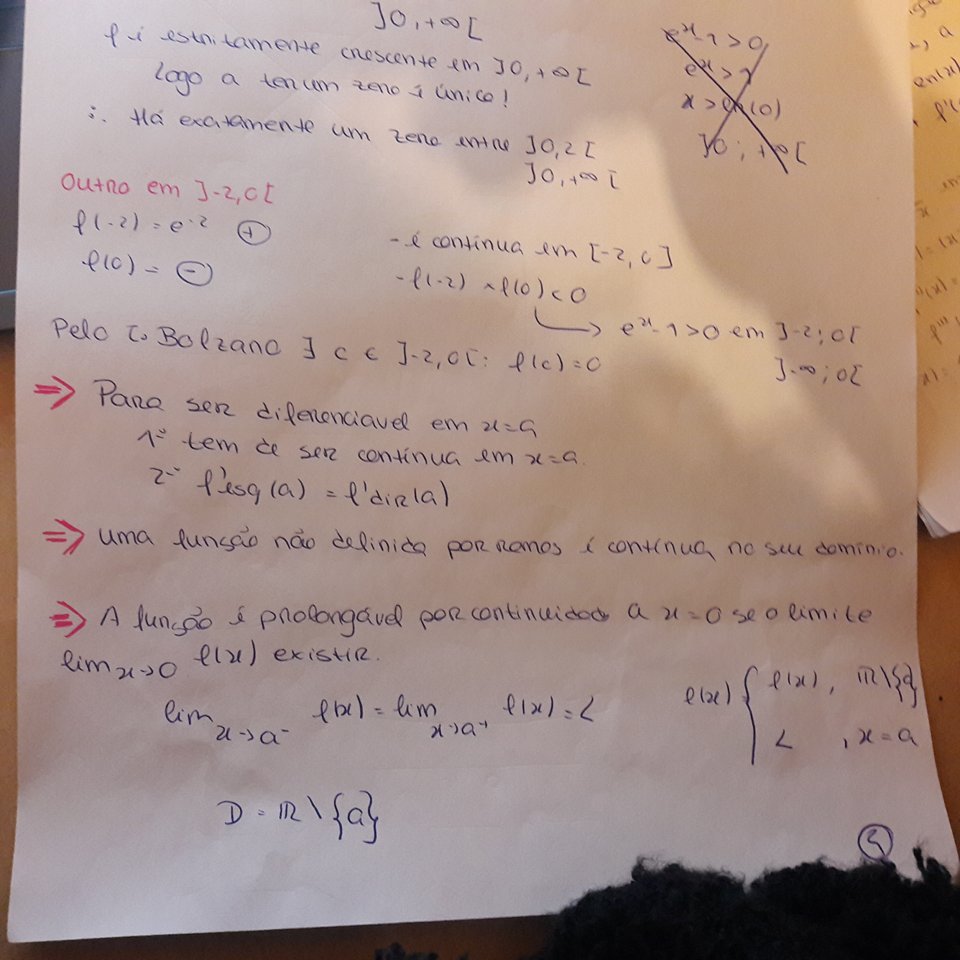 ]0,+∞[
f é estritamente crescente em ]0,+∞[
logo a ter um zero é único!
∴ Há exatamente um zero entre ]0,2[
]0,+∞[
e^x-1>0
e^x>1
x>ln(0)
]0;+∞[
Outro em ]-2,0[
f(-2)=e^-2 ⊕
f(0)= ⊖
- é contínua em [-2,0]
- f(-2) × f(0) < 0
→ e^x-1>0 em ]-2;0[
]-∞;0[
Pelo t. Bolzano ∃ c ∈ ]-2,0[: f(c)=0
⇒ Para ser diferenciavel em x=a
1º tem de ser contínua em x=a.
2º f'esq(a) = f'dir(a)
⇒ uma função não definida por ramos é contínua no seu domínio.
⇒ A função é prolongável por continuidade a x=0 se o limite
lim x→0 f(x) existir.
lim x→a⁻ f(x) = lim x→a⁺ f(x) = L
f(x) { f(x), ℝ\{a}
L , x=a
D = ℝ\{a}